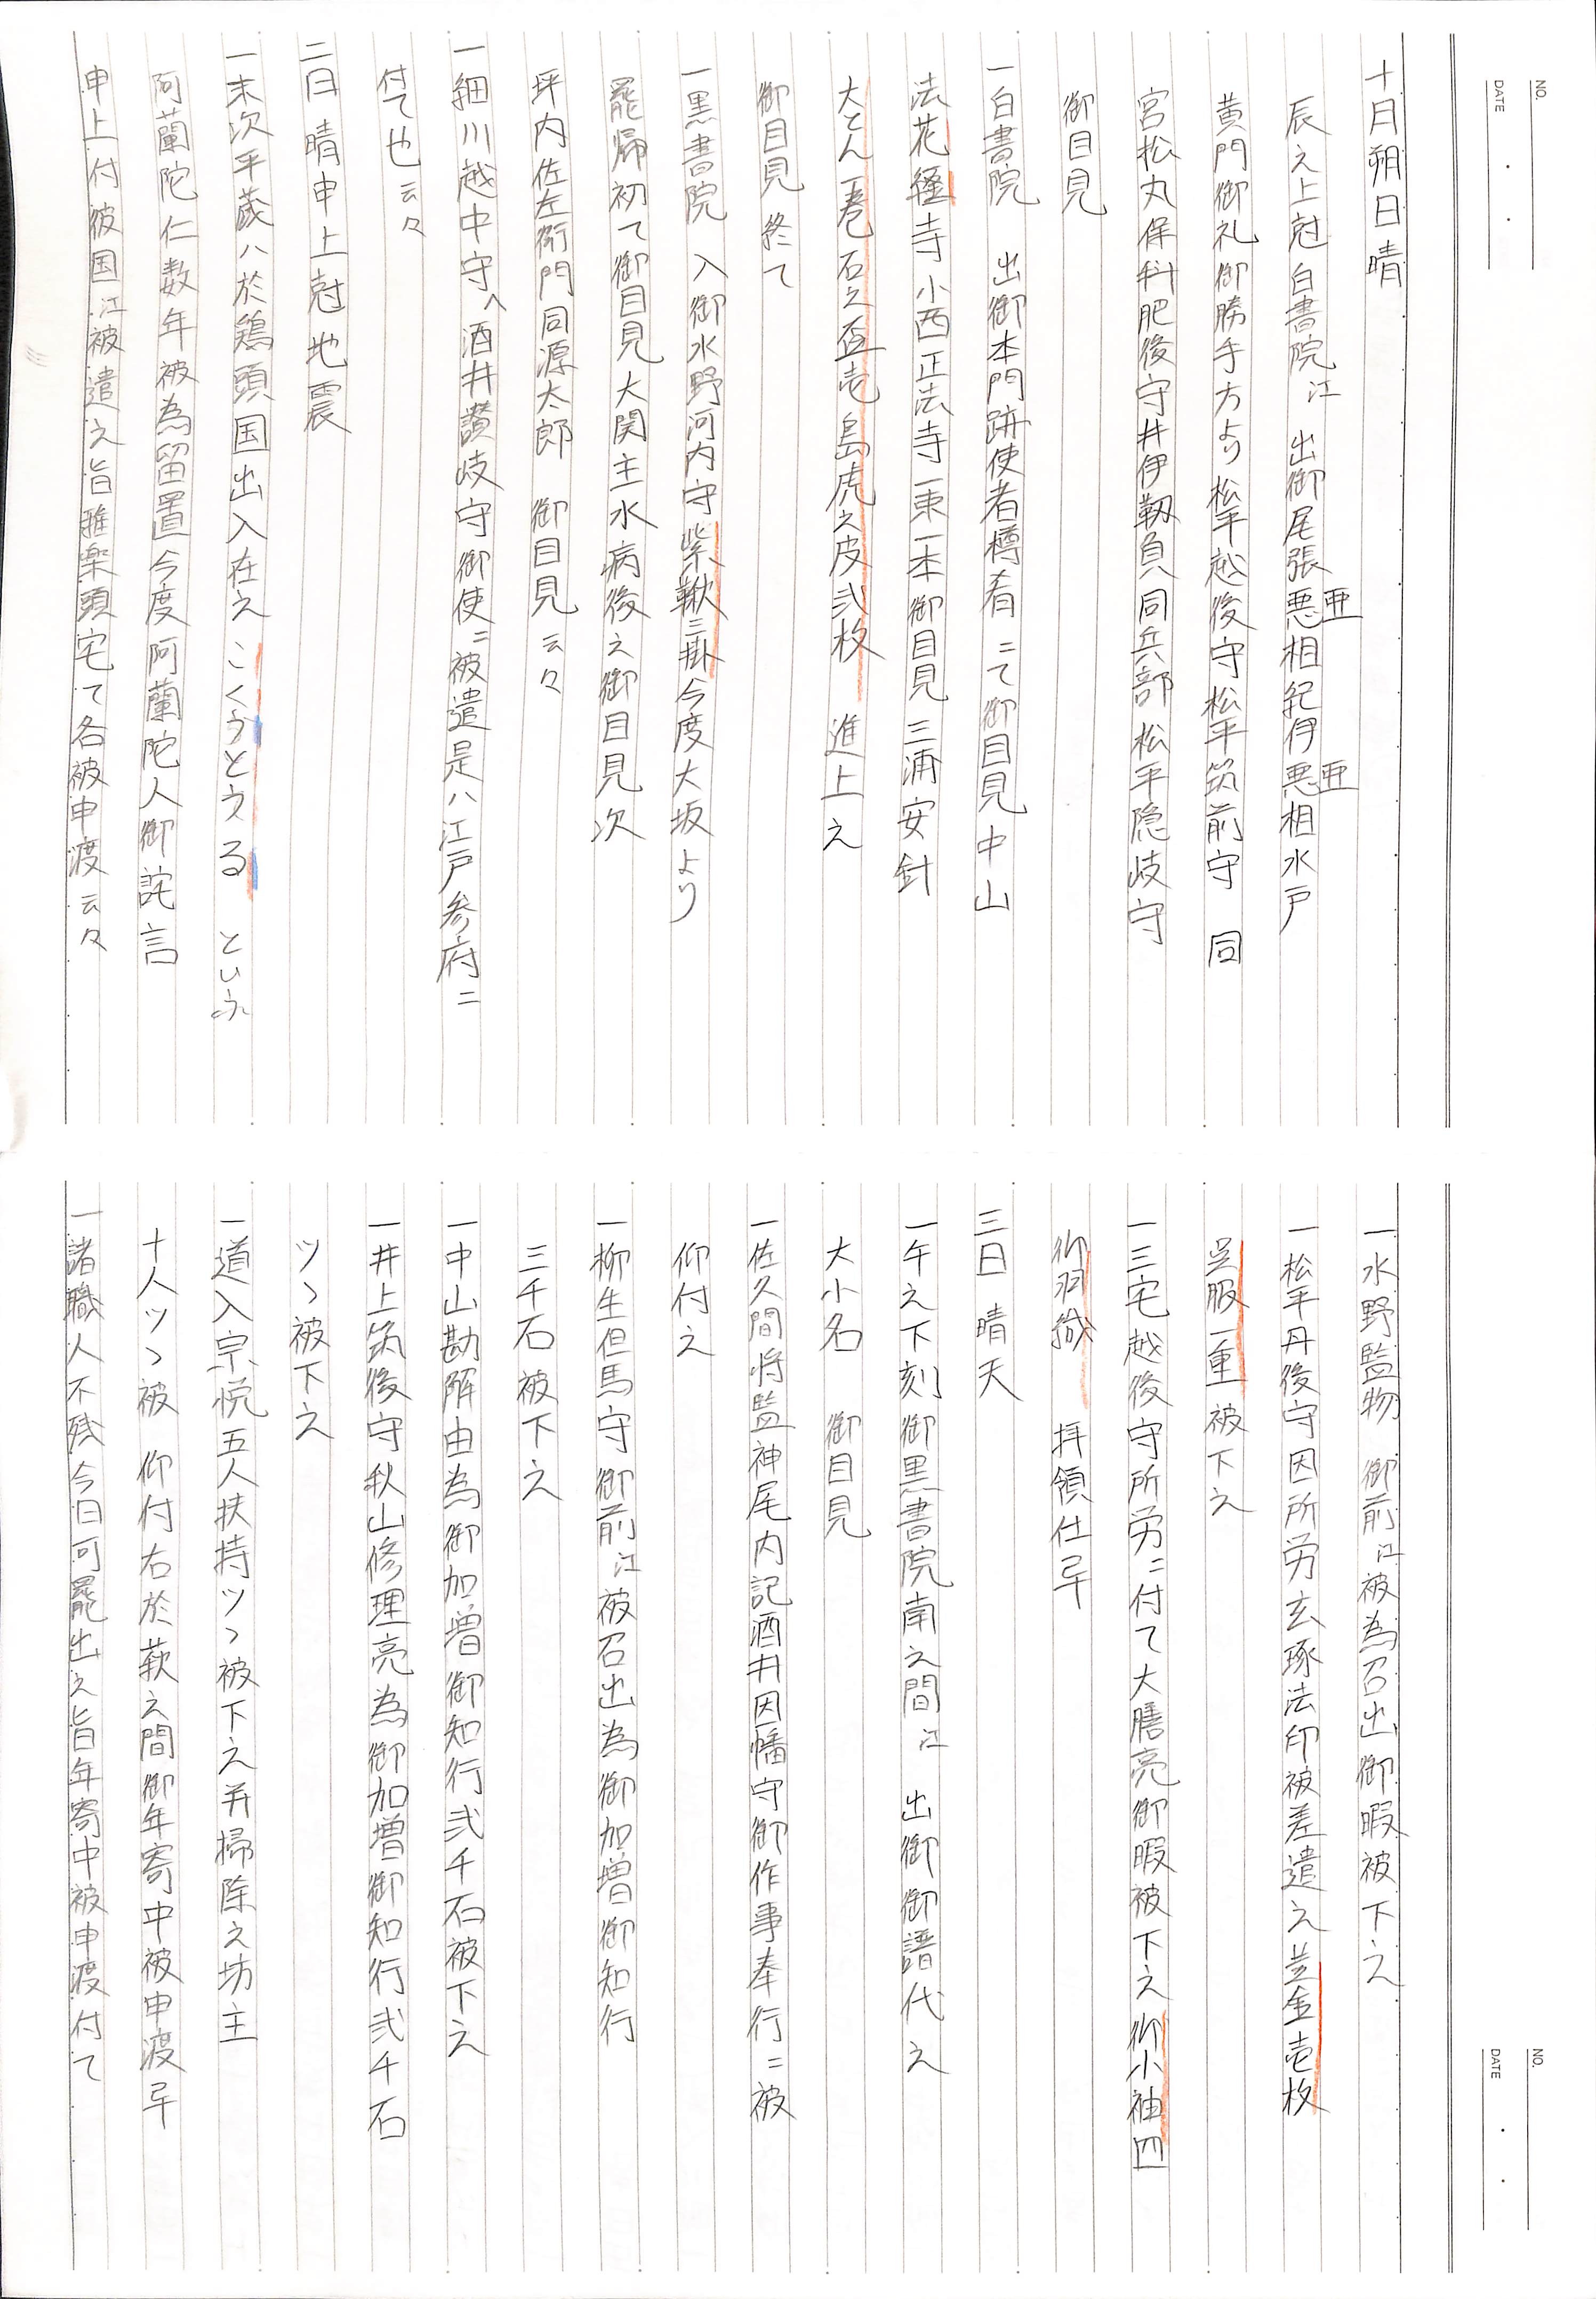 NO.
DATE
十月朔日晴
辰之上尅白書院江 出御尾張悪相紀伊悪相水戸
亜 亜
黄門御礼御勝手方より松平越後守松平筑前守 同
宮松丸保科肥後守井伊靱負同兵部 松平隠岐守
御目見
一白書院 出御本門跡使者樽肴ニて御目見中山
法花経寺 小西正法寺一束一本御目見三浦安針
大とん壱巻 石之盃壱 島虎之皮弐枚 進上之
御目見 終て
一黒書院 入御水野河内守紫鞦三掛今度大坂より
罷帰初て御目見大関主水病後之御目見次
坪内佐左衛門同源太郎 御目見云々
一細川越中守へ酒井讃岐守御使ニ被遣是ハ江戸参府ニ
付て也云々
二日晴申上尅地震
一末次平蔵ハ於鶏頭国出入在之こくうとうる といふ
阿蘭陀仁数年被為留置今度阿蘭陀人御詫言
申上付彼国江被遣之旨雅楽頭宅て各被申渡云々
NO.
DATE
一水野監物 御前江被為召出御暇被下之
一松平丹後守因所労玄琢法印被差遣之並金壱枚
呉服一重被下之
一三宅越後守所労ニ付て大膳亮御暇被下之御小袖四
御羽織 拝領仕畢
三日晴天
一午之下刻御黒書院南之間江 出御御譜代之
大小名 御目見
一佐久間将監神尾内記酒井因幡守御作事奉行ニ被
仰付之
一柳生但馬守御前江被召出為御加増御知行
三千石被下之
一中山勘解由為御加増御知行弐千石被下之
一井上筑後守秋山修理亮為御加増御知行弐千石
ツヽ被下之
一道入宗悦五人扶持ツヽ被下之并掃除之坊主
十人ツヽ被 仰付右於萩之間御年寄中被申渡畢
一諸職人不残今日可罷出之旨年寄中被申渡付て